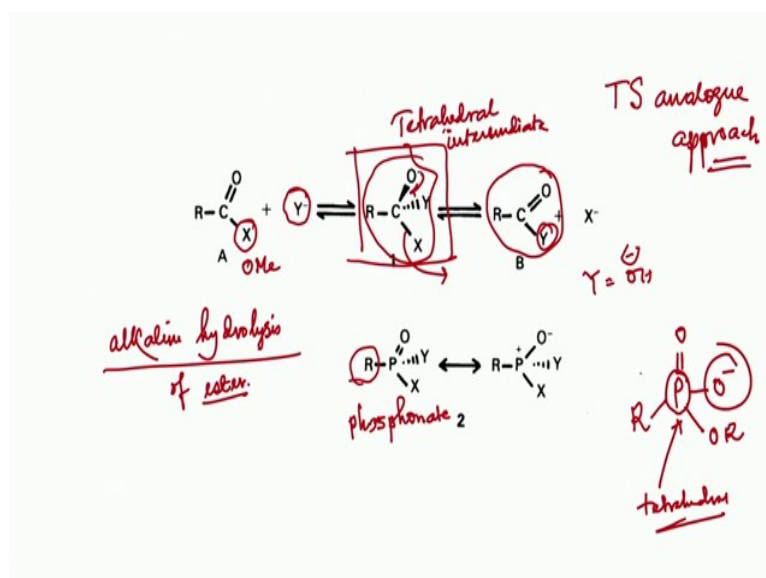 TS analogue
approach
Tetrahedral
intermediate
O
R-C
X
A
OMe
+
Y⁻
O⁻
R-C
Y
X
1
O
R-C
Y
B
+ X⁻
Y = OH⊖
alkaline hydrolysis
of ester.
O
R-P
Y
X
phosphonate 2
O⁻
R-P⁺
Y
X
O
P
O⁻
R
OR
tetrahedral